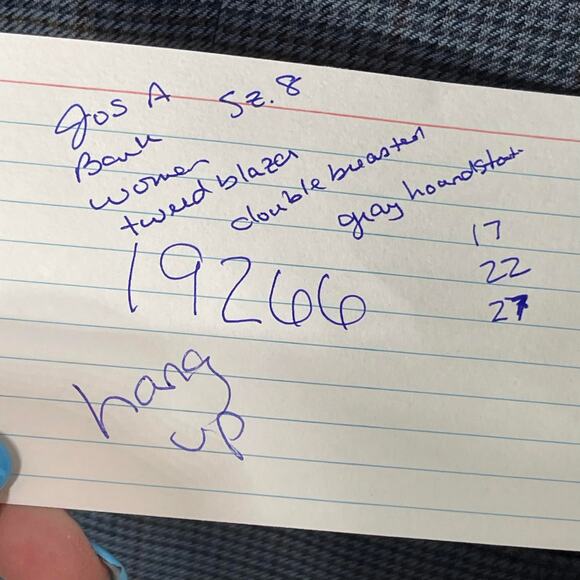 Jos A Sz. 8
Bank
women
tweed blazer
double breasted
gray houndstooth
17
22
27
19266
hang
up